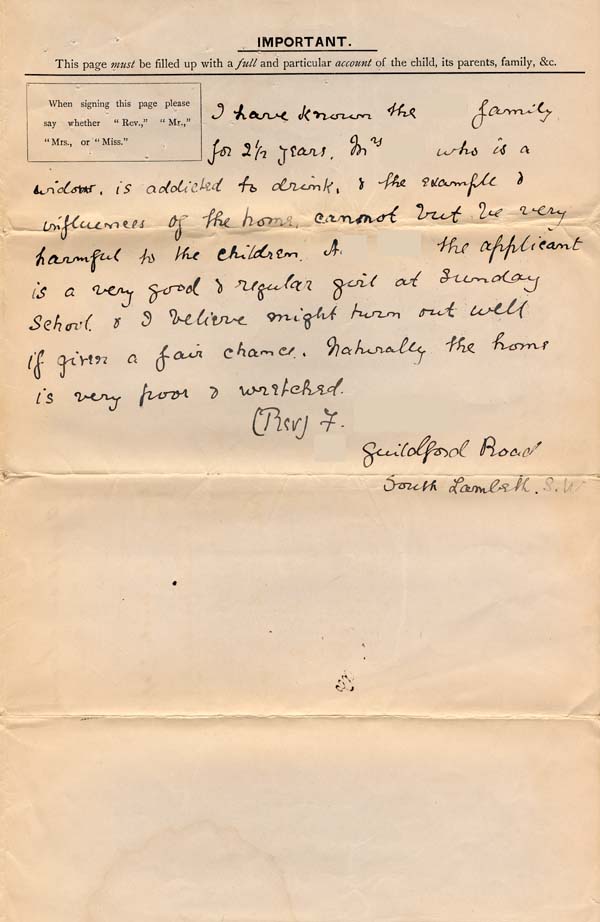 IMPORTANT.
This page must be filled up with a full and particular account of the child, its parents, family, &c.
When signing this page please
say whether "Rev.," "Mr.,"
"Mrs., or "Miss."
I have known the family
for 2½ years. Mrs who is a
widow, is addicted to drink, & the example &
influences of the home, cannot but be very
harmful to the children. A. the applicant
is a very good & regular girl at Sunday
School & I believe might turn out well
if given a fair chance. Naturally the home
is very poor & wretched.
(Rev) F.
Guildford Road
South Lambeth. S.W